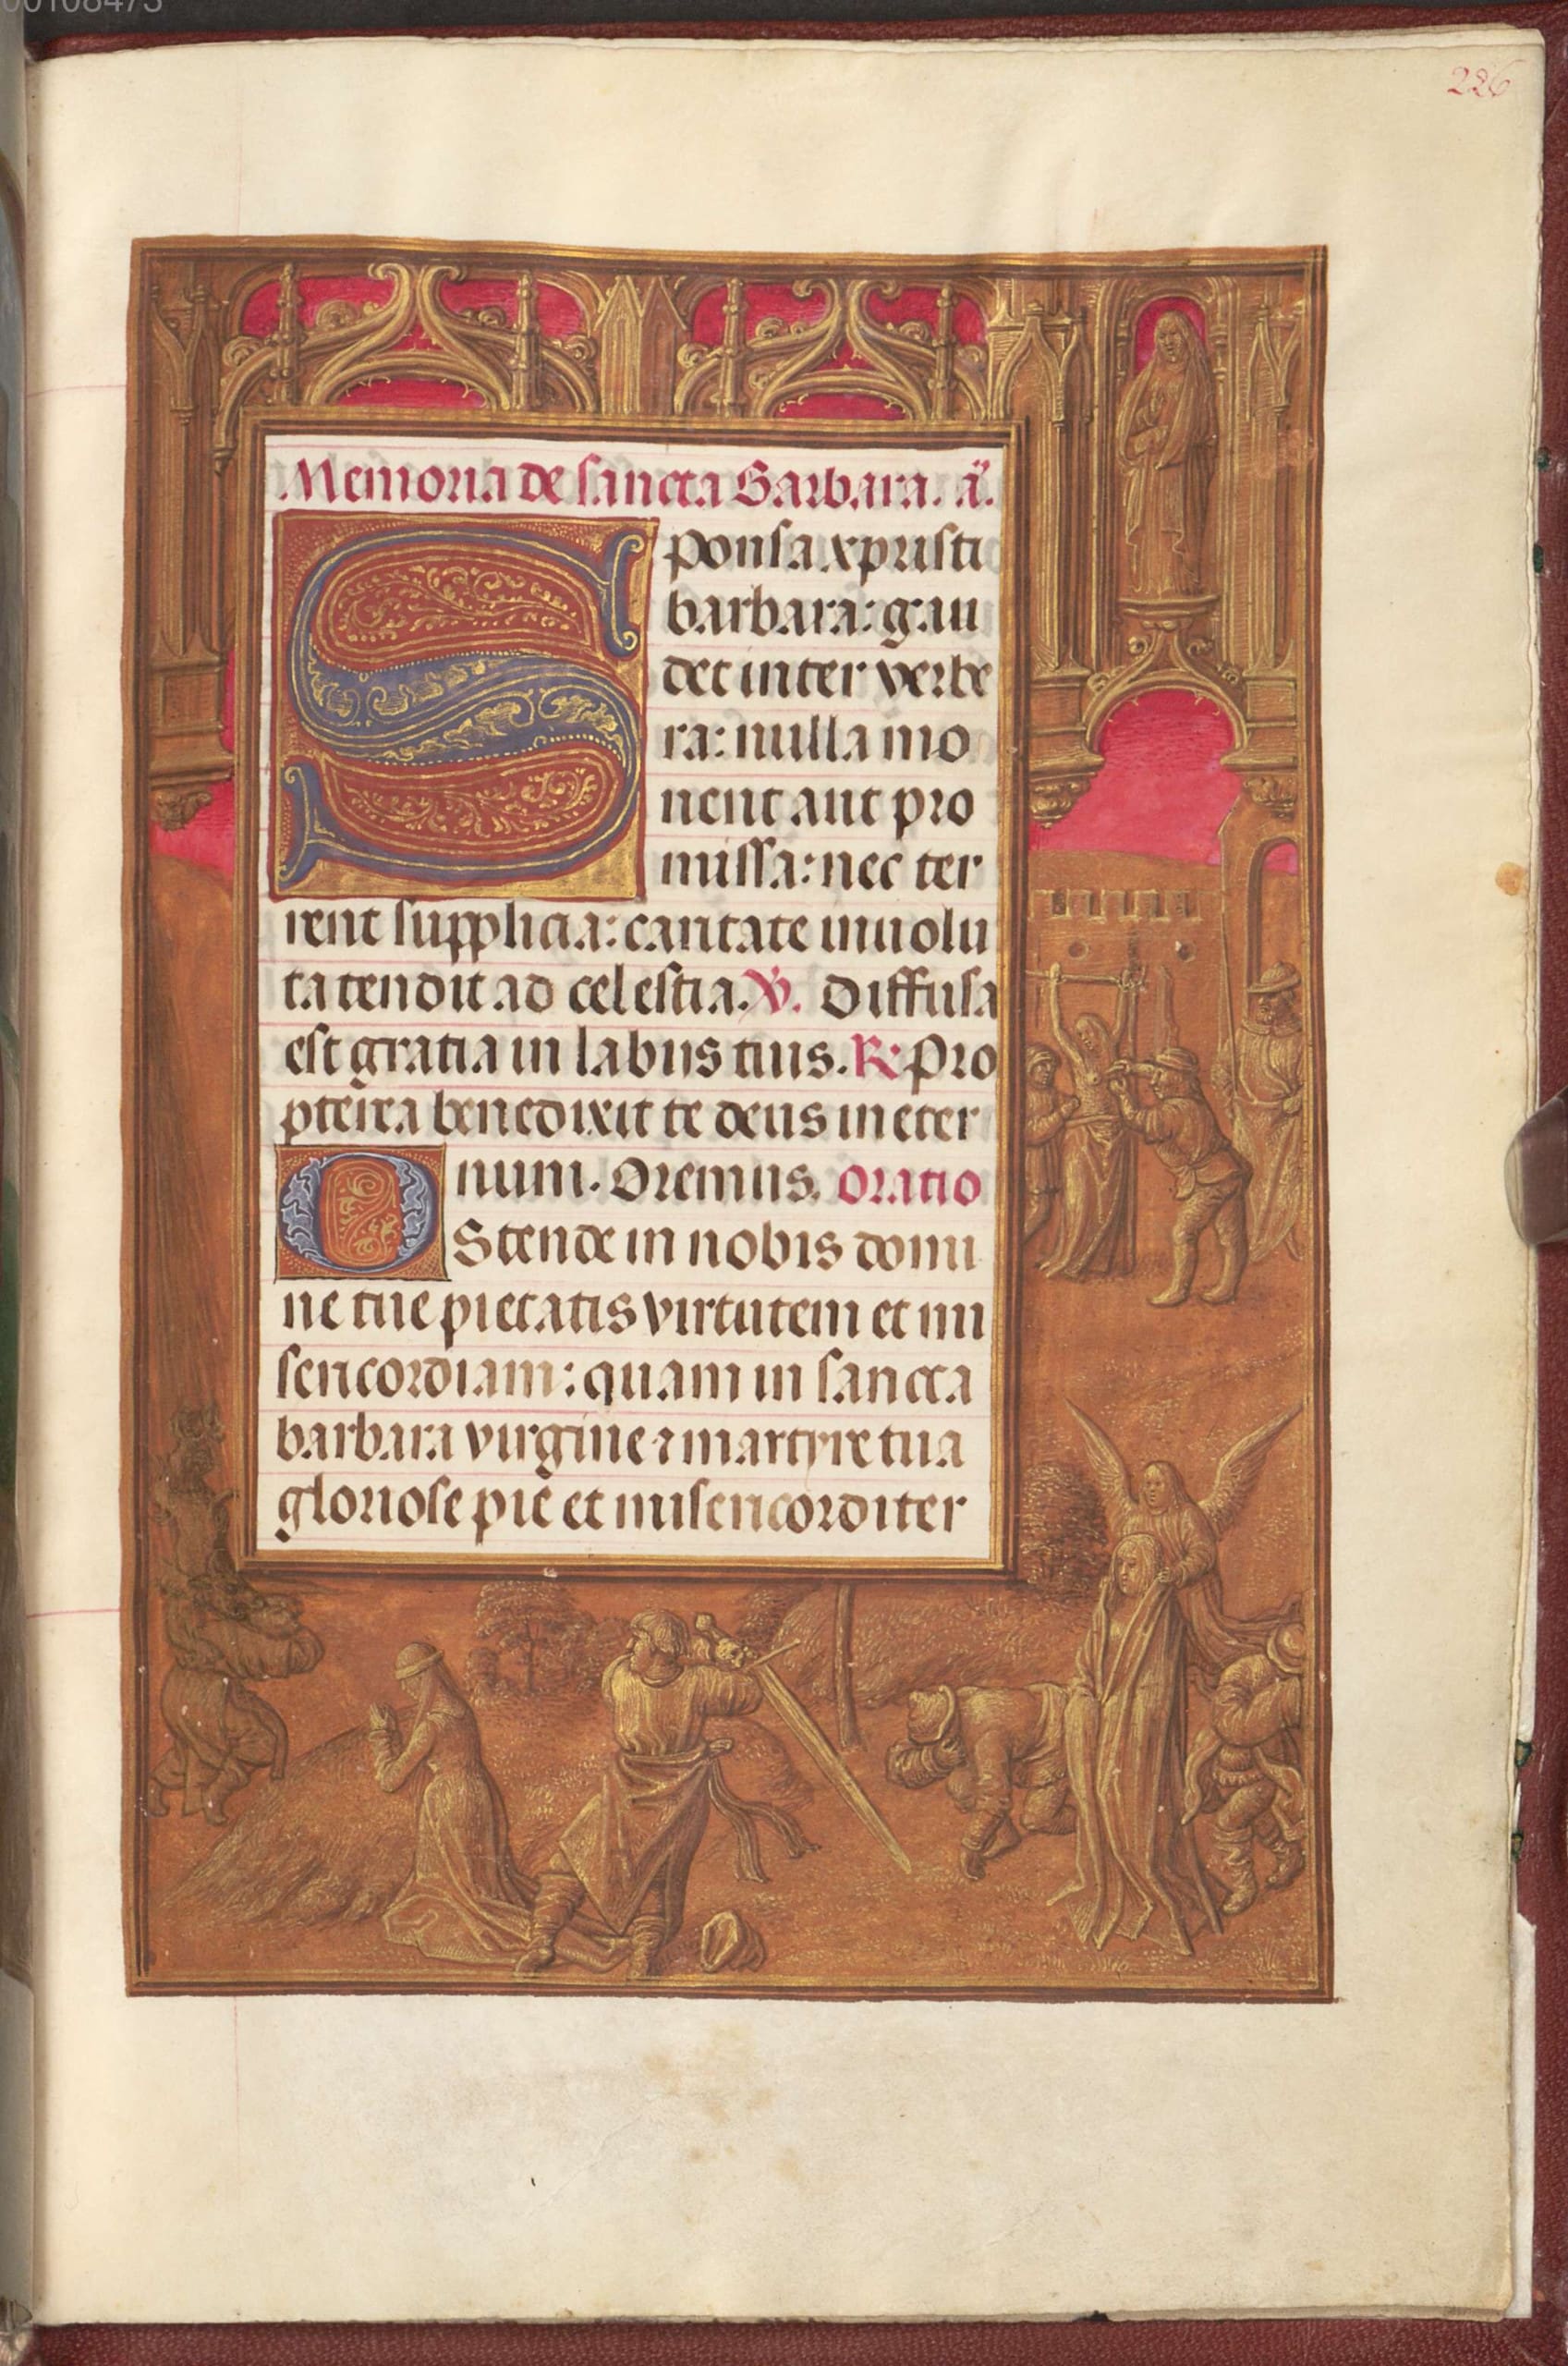 00108473
226
Memoria de sancta Barbara. a͂.
Sponsa xpristi
barbara: gau
det inter verbe
ra: nulla mo
nent aut pro
missa: nec ter
rent supplicia: caritate inuolu
ta tendit ad celestia. V. Diffusa
est gratia in labiis tuis. R. Pro
pterea benedixit te deus in eter
num. Oremus. Oratio
OStende in nobis domi
ne tue pietatis virtutem et mi
sericordiam: quam in sancta
barbara virgine ⁊ martyre tua
gloriose pie et misericorditer